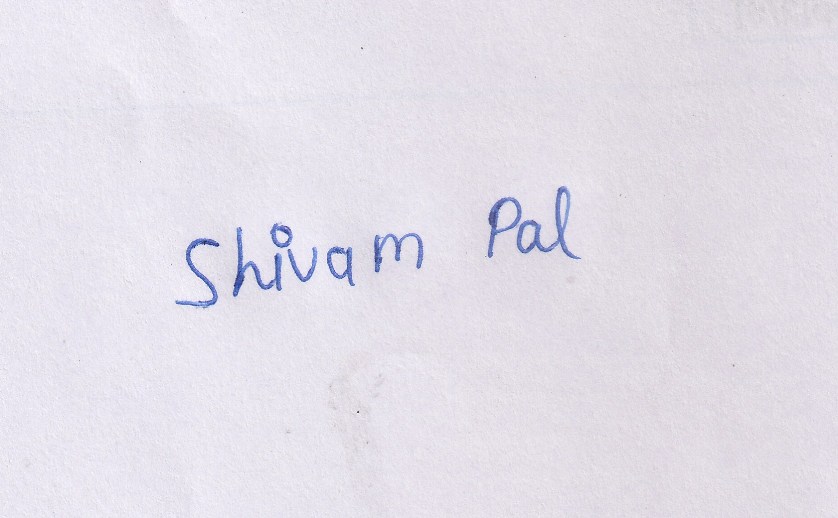 Shivam Pal